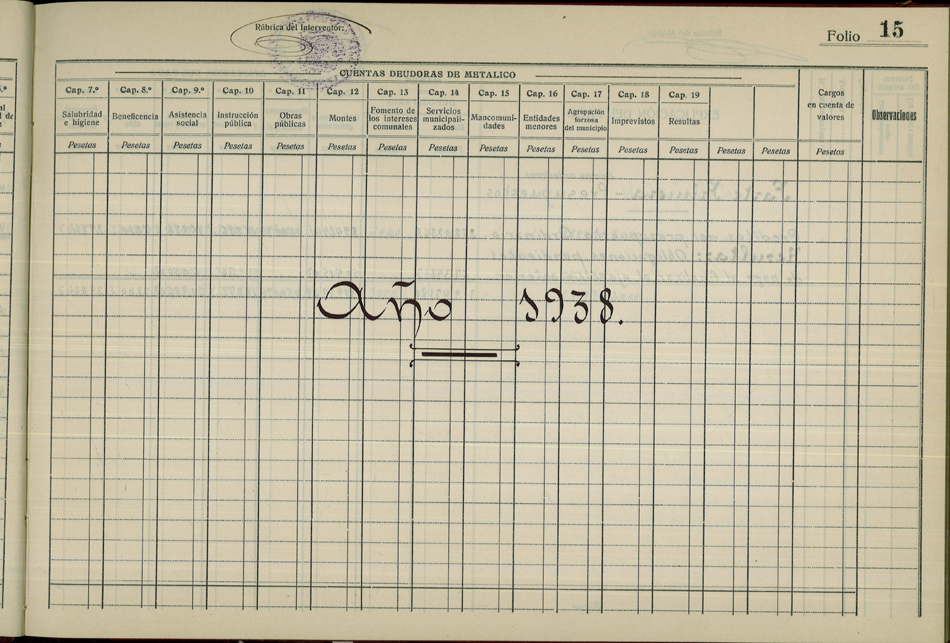 Rúbrica del Interventor:
Folio 15
CUENTAS DEUDORAS DE METALICO
Cap. 7.º Cap. 8.º Cap. 9.º Cap. 10 Cap. 11 Cap. 12 Cap. 13 Cap. 14 Cap. 15 Cap. 16 Cap. 17 Cap. 18 Cap. 19
Salubridad e higiene
Beneficencia
Asistencia social
Instrucción pública
Obras públicas
Montes
Fomento de los intereses comunales
Servicios municipali-zados
Mancomuni-dades
Entidades menores
Agrupación forzosa del municipio
Imprevistos
Resultas
Cargos en cuenta de valores
Observaciones
Pesetas Pesetas Pesetas Pesetas Pesetas Pesetas Pesetas Pesetas Pesetas Pesetas Pesetas Pesetas Pesetas Pesetas Pesetas Pesetas
Año 1938.